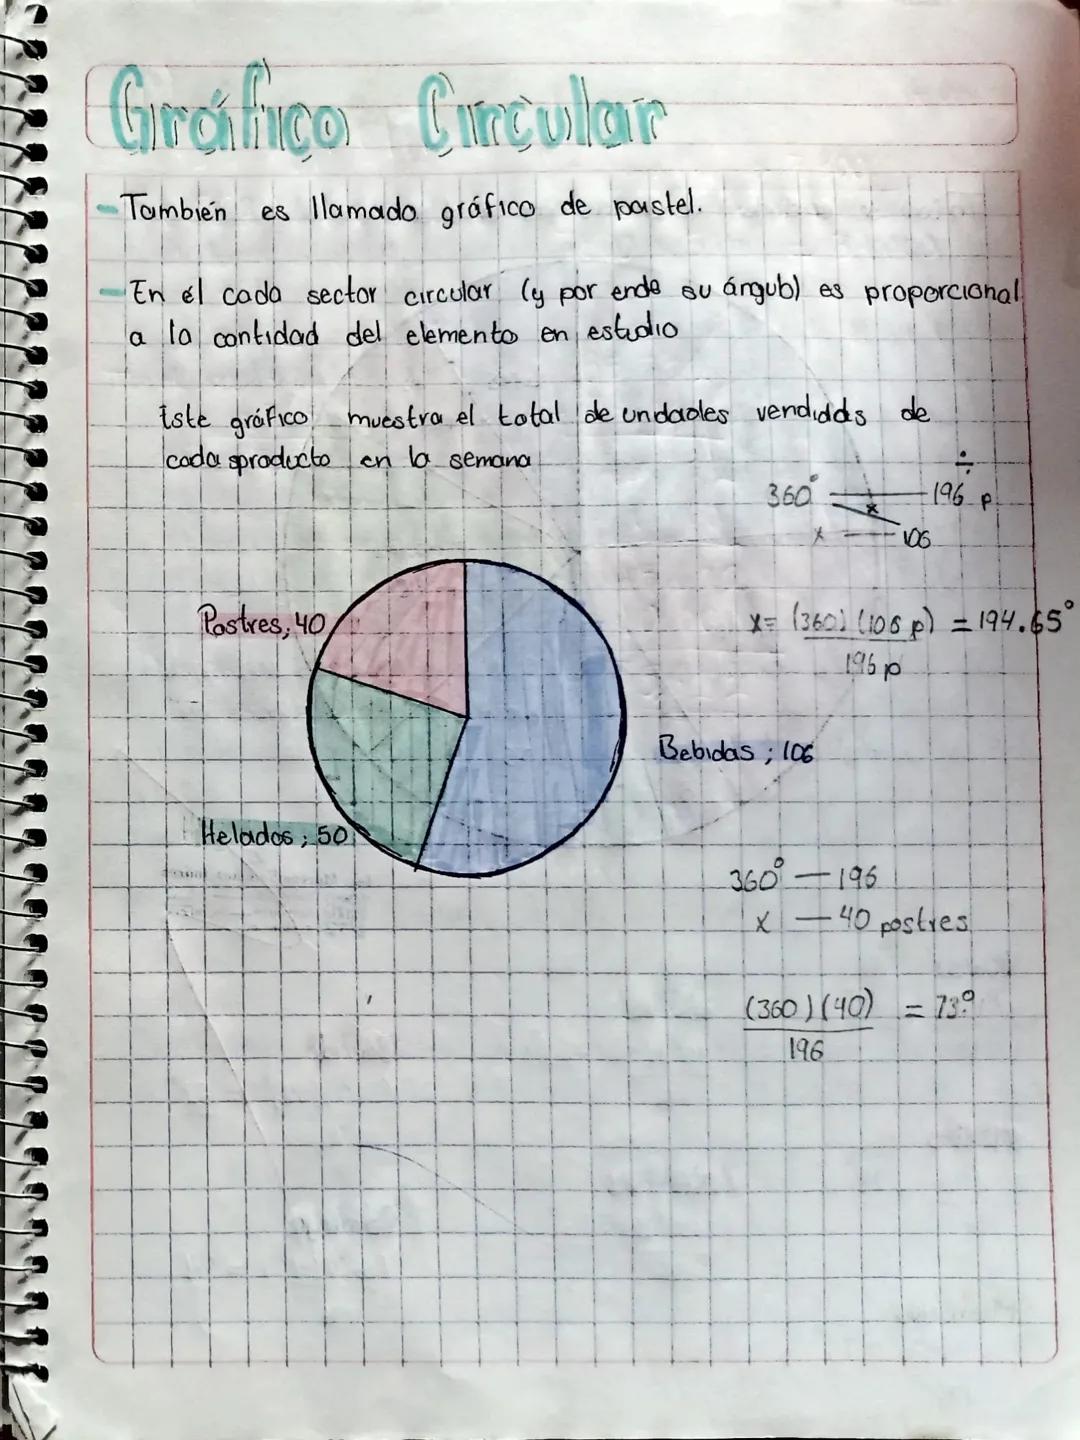 Gráfico Circular
- También es llamado gráfico de pastel.
- En él cada sector circular (y por ende su ángulo) es proporcional
a la cantidad del elemento en estudio
Este gráfico muestra el total de undades vendidas de
cada producto en la semana
÷
360° — 196 p
x
x — 106
Postres; 40
x = (360) (106 p) = 194.65°
196 p
Bebidas ; 106
Helados ; 50
360° — 196
x — 40 postres
(360)(40) = 73°
196